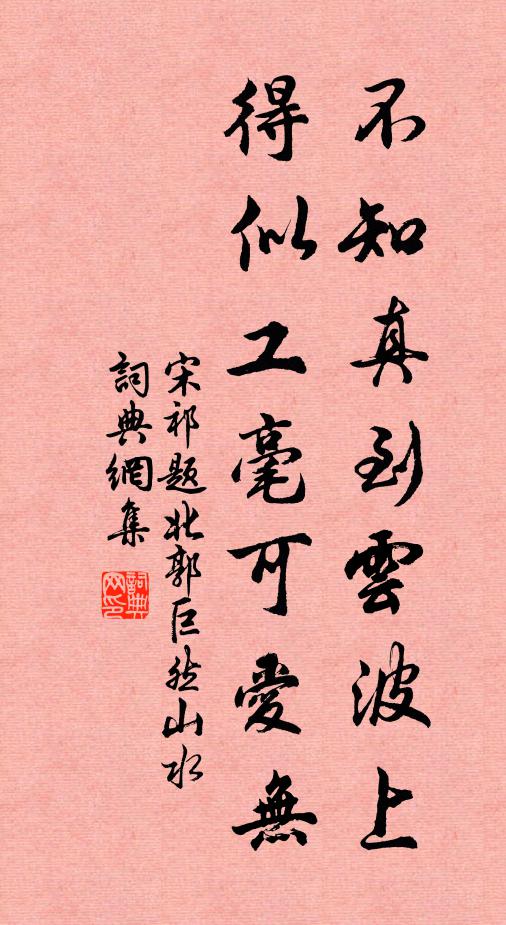 不知真到雲波上
得似工毫可愛無
宋祁題北郭巨然山水
詞典網集
詞典
网印